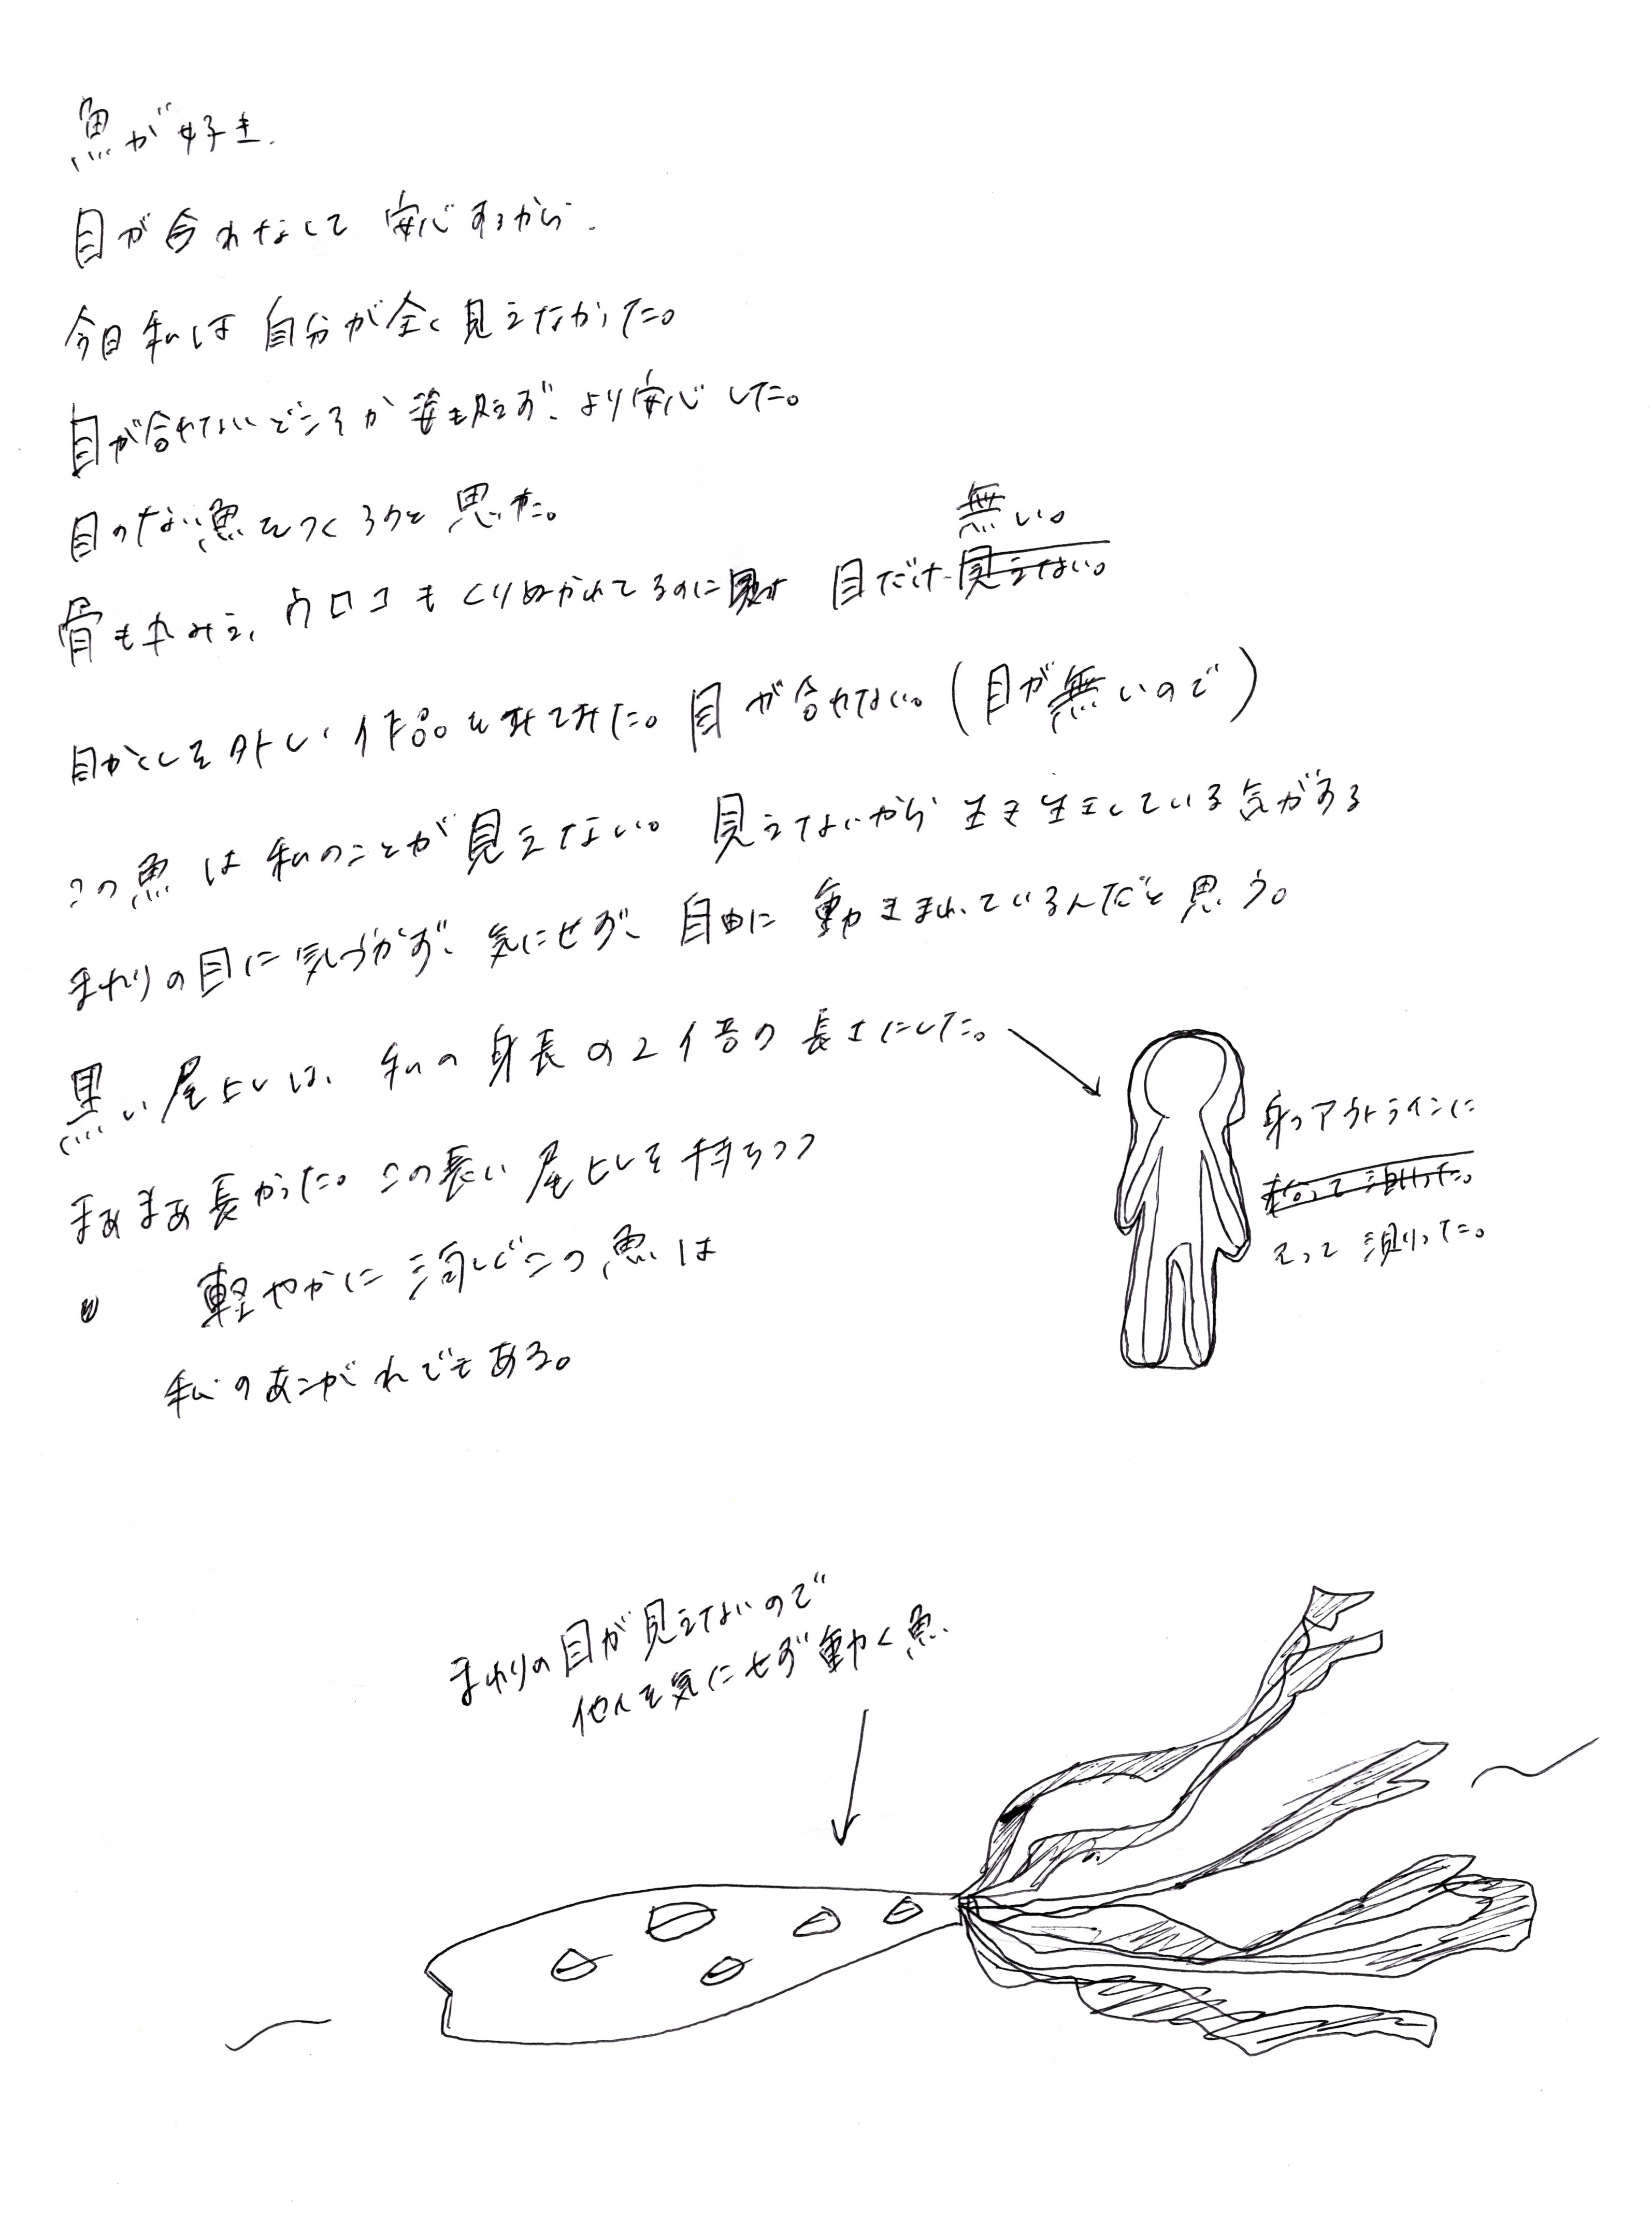 魚が好き.
目が合わなくて 安心するから.
今日私は 自分が全く見えなかった。
目が合わないどころか姿も見えず、より安心した。
目のない魚をつくろうと思った。
無い。
骨も丸みえ、ウロコもくりぬかれてるのに 目だけ 見えない。
目かくしを外し、作品をみてみた。目が合わない。(目が無いので)
この魚は私のことが見えない。見えないから生き生きしている気がする
まわりの目に気づかず、気にせず、自由に動きまわっているんだと思う。
黒い尾ヒレは、私の身長の2倍の長さにした。
身のアウトラインに
そって測った。
まあまあ長かった。この長い尾ヒレを持ちつつ
軽やかに泳ぐこの魚は
私のあこがれでもある。
まわりの目が見えないので
他人を気にせず動く魚